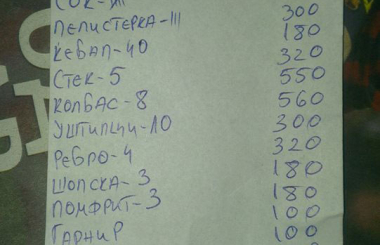 СОК-III 300
ПЕЛИСТЕРКА-III 180
КЕБАП-40 320
СТЕК-5 550
КОЛБАС-8 560
УШТИПЦИ-10 300
РЕБРО-4 320
ШОПСКА-3 180
ПОМФРИТ-3 180
ГАРНИР 100
100